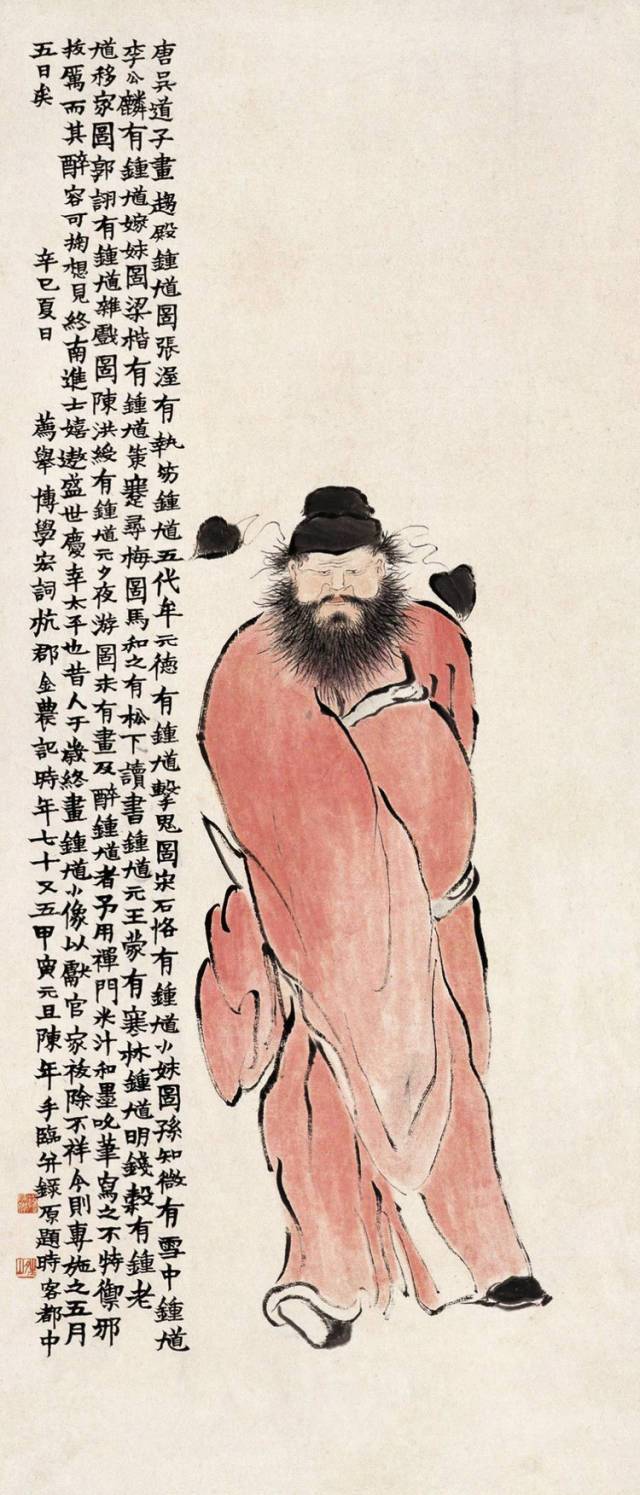 唐吳道子畫趨殿鍾馗圖張渥有執笏鍾馗五代牟元德有鍾馗擊鬼圖宋石恪有鍾馗小妹圖孫知微有雪中鍾馗
李公麟有鍾馗嫁妹圖梁楷有鍾馗策蹇尋梅圖馬和之有松下讀書鍾馗元王蒙有寒林鍾馗明錢穀有鍾老
馗移家圖郭詡有鍾馗雜戲圖陳洪綬有鍾馗元夕夜游圖未有畫及醉鍾馗者予用禪門米汁和墨吮筆寫之不特禦邪
拔厲而其醉容可掬想見終南進士嬉遨盛世慶幸太平也昔人于歲終畫鍾馗小像以獻官家祓除不祥今則專施之五月
五日矣 辛巳夏日 薦舉博學宏詞杭郡金農記時年七十又五甲寅元旦陳年手臨并錄原題時客都中